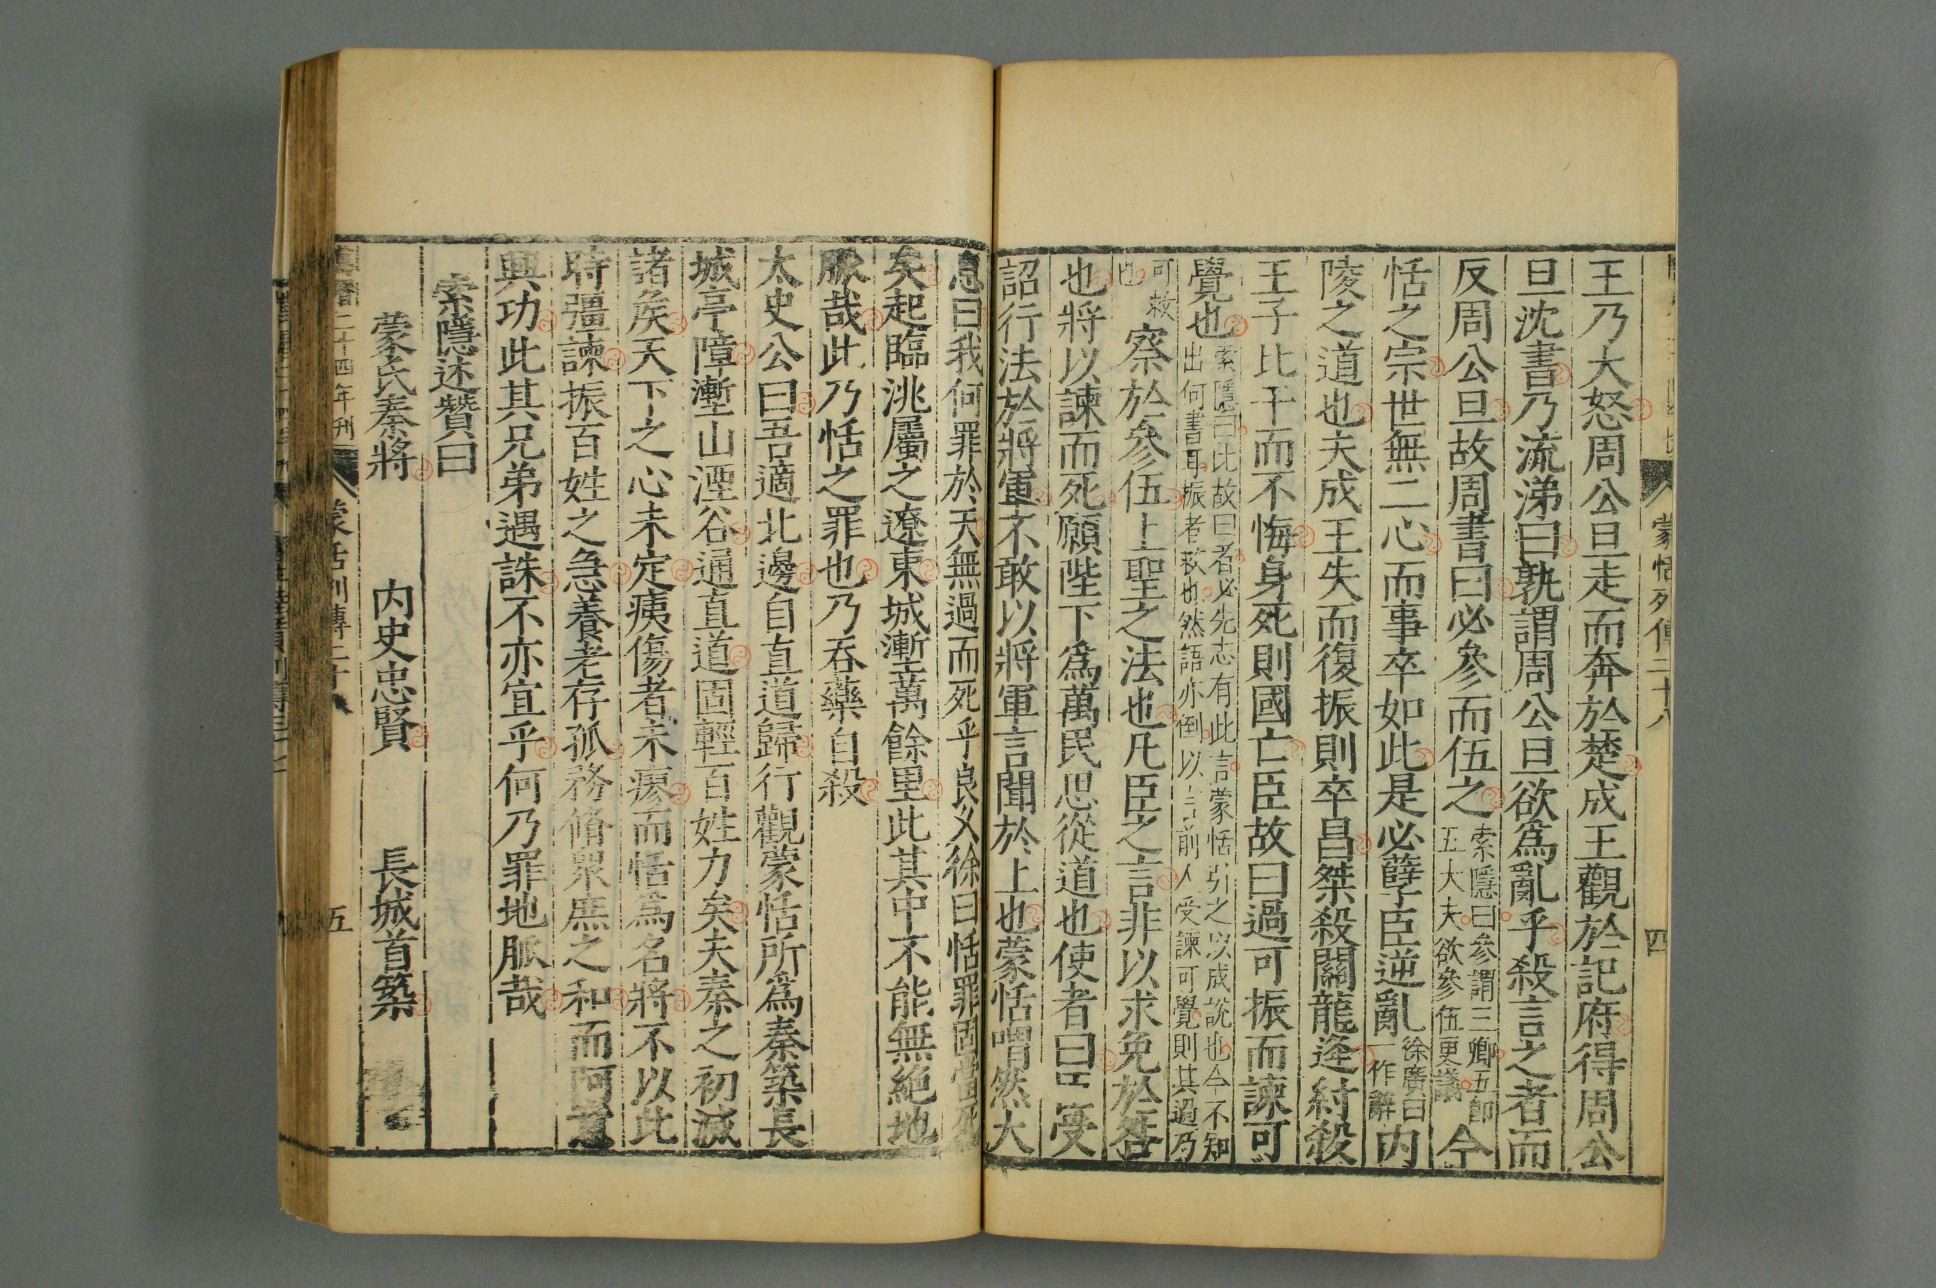 蒙恬列傳二十八
四
王乃大怒周公旦走而奔於楚成王觀於記府得周公
旦沈書乃流涕曰孰謂周公旦欲爲亂乎殺言之者而
反周公旦故周書曰必參而伍之索隱曰參謂三卿五卽五大夫欲參伍更議今
恬之宗世無二心而事卒如此是必孽臣逆亂徐廣曰一作辭内
陵之道也夫成王失而復振則卒昌桀殺關龍逄紂殺
王子比干而不悔身死則國亡臣故曰過可振而諫可
覺也索隱曰此故曰者必先志有此言蒙恬引之以成說也今不知出何書耳振者救也然語亦倒以言前人受諫可覺則其過乃
可救也察於參伍上聖之法也凡臣之言非以求免於咎
也將以諫而死願陛下爲萬民思從道也使者曰臣受
詔行法於將軍不敢以將軍言聞於上也蒙恬喟然大
息曰我何罪於天無過而死乎良乆徐曰恬罪固當死
矣起臨洮屬之遼東城漸萬餘里此其中不能無絶地
脈哉此乃恬之罪也乃吞藥自殺
太史公曰吾適北邊自直道歸行觀蒙恬所爲秦築長
城亭障塹山湮谷通直道固輕百姓力矣夫秦之初滅
諸矦天下之心未定痍傷者未瘳而恬爲名將不以此
時彊諫振百姓之急養老存孤務脩衆庶之和而阿意
興功此其兄弟遇誅不亦宜乎何乃罪地脈哉
索隱述贊曰
蒙氏秦將　内史忠賢　長城首築
萬曆二十四年刊
蒙恬列傳二十八
五